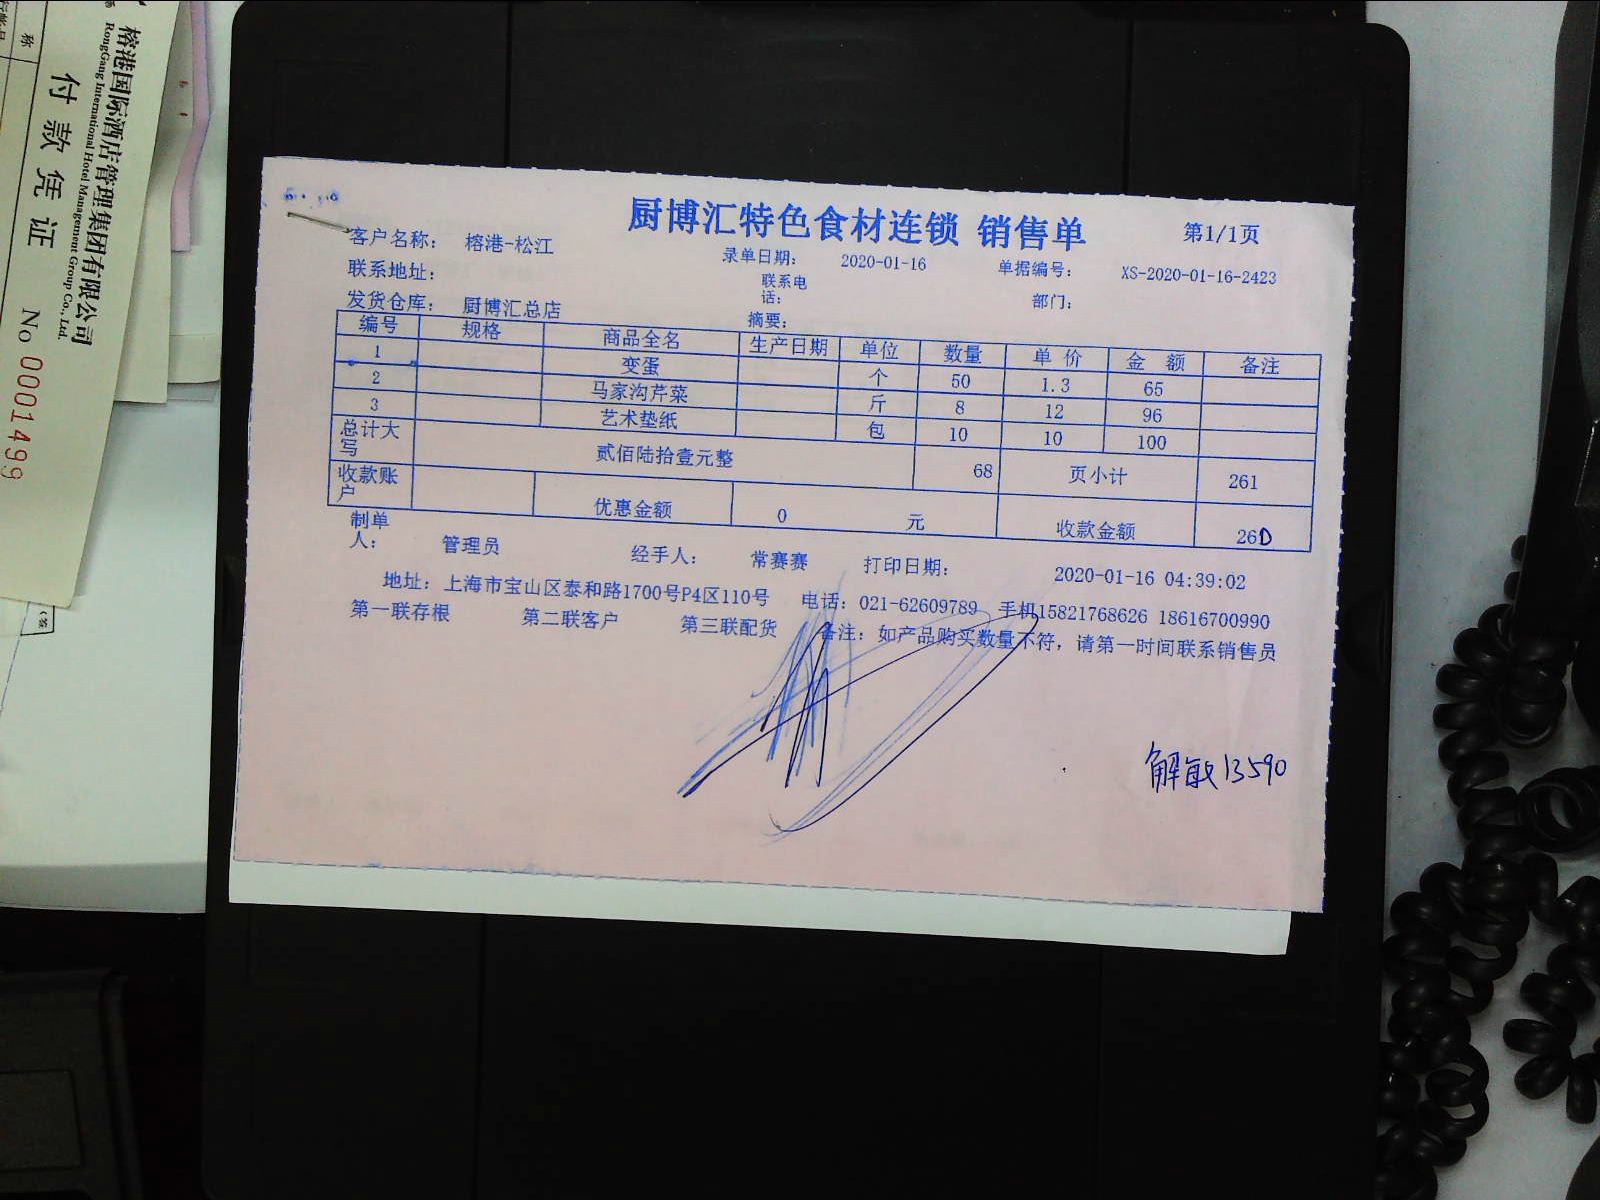 厨博汇特色食材连锁 销售单 第1/1页
客户名称: 榕港-松江 录单日期: 2020-01-16 单据编号: XS-2020-01-16-2423
联系地址: 联系电话: 部门:
发货仓库: 厨博汇总店 摘要:
编号 规格 商品全名 生产日期 单位 数量 单 价 金 额 备注
1 变蛋 个 50 1.3 65
2 马家沟芹菜 斤 8 12 96
3 艺术垫纸 包 10 10 100
总计大写 贰佰陆拾壹元整 68 页小计 261
收款账户 优惠金额 0 元 收款金额 260
制单人: 管理员 经手人: 常赛赛 打印日期: 2020-01-16 04:39:02
地址: 上海市宝山区泰和路1700号P4区110号 电话: 021-62609789 手机15821768626 18616700990
第一联存根 第二联客户 第三联配货 备注: 如产品购买数量不符，请第一时间联系销售员
解敏13590
榕港国际酒店管理集团有限公司
RongGang International Hotel Management Group Co., Ltd.
付款凭证 No 0001499
称